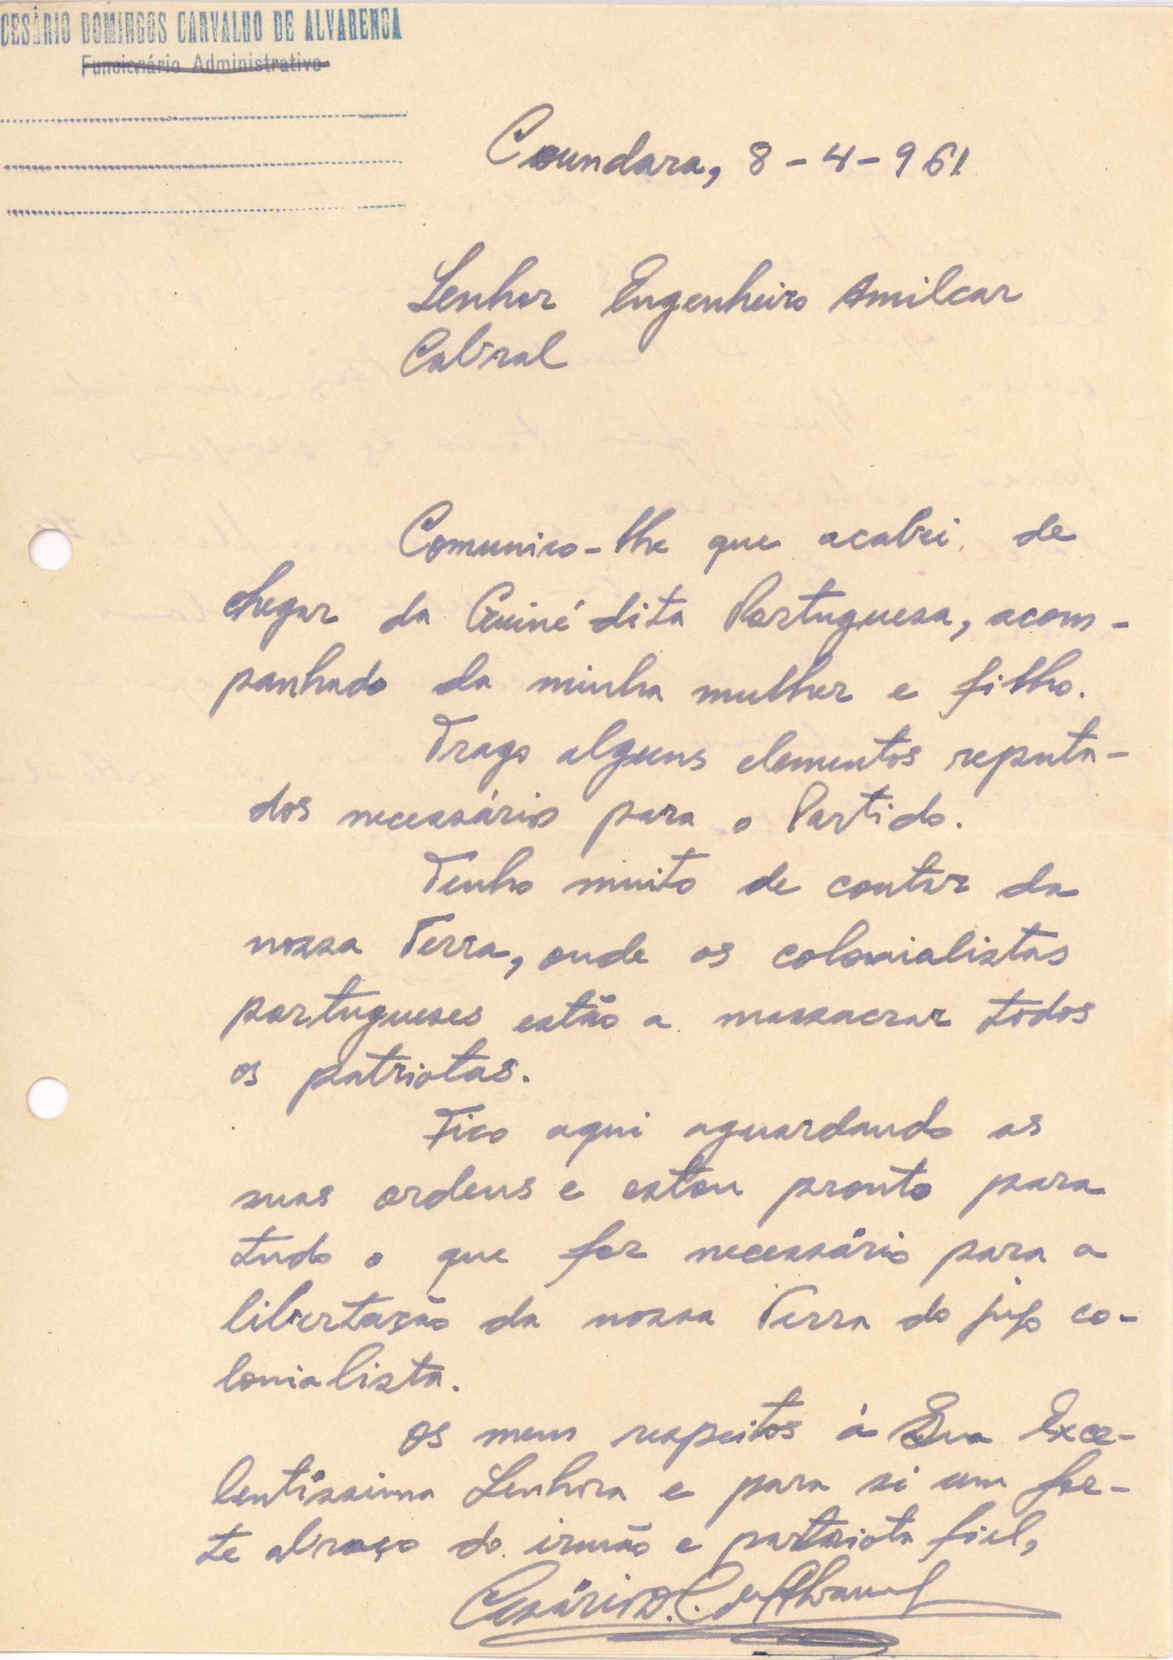 CESÁRIO DOMINGOS CARVALHO DE ALVARENGA
Funcionário Administrativo
Coundara, 8-4-961
Senhor Engenheiro Amilcar
Cabral
Comunico-lhe que acabei de
chegar da Guiné dita Portuguesa, acom-
panhado da minha mulher e filho.
Trago alguns elementos reputa-
dos necessário para o Partido.
Tenho muito de contar da
nossa Terra, onde os colonialistas
portugueses estão a massacrar todos
os patriotas.
Fico aqui aguardando as
suas ordens e estou pronto para
tudo o que for necessário para a
libertação da nossa Terra do jugo co-
lonialista.
Os meus respeitos à Sua Exce-
lentíssima Senhora e para si um for-
te abraço do irmão e patriota fiel,
Cesário D. C. de Alvarenga